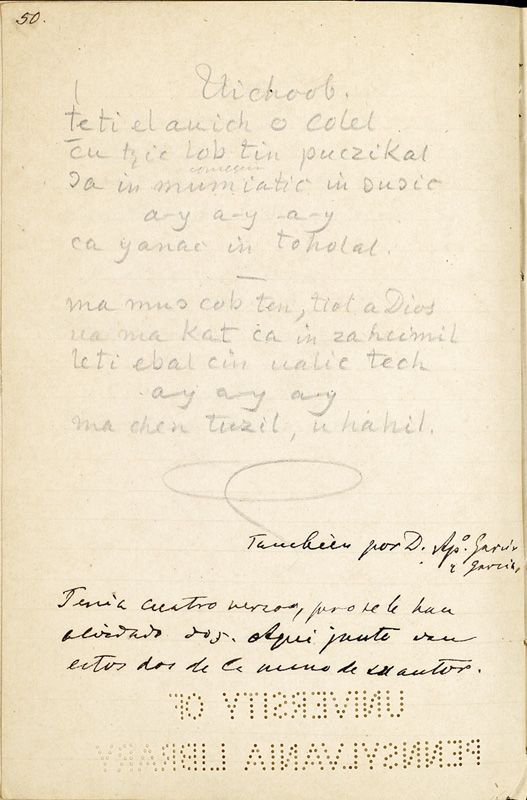 50.
Uichoob.
teti el auich o colel
cu tzic lob tin puczikal
in mumiatic in
a-y a-y a-y
ca yanac in toholal.
ma mus cob ten, tiol a Dios
ua ma kat ca in zahcimil
leti ebal cin ualic tech
ay ay ay
ma chen tuzil, u hahil.
Tambien por D. Apo. García
y García,
Tenía cuatro versos, pero se le han
olvidado dos. Aqui junto van
estos dos de la mano de su autor.
UNIVERSITY OF
PENNSYLVANIA LIBRARY